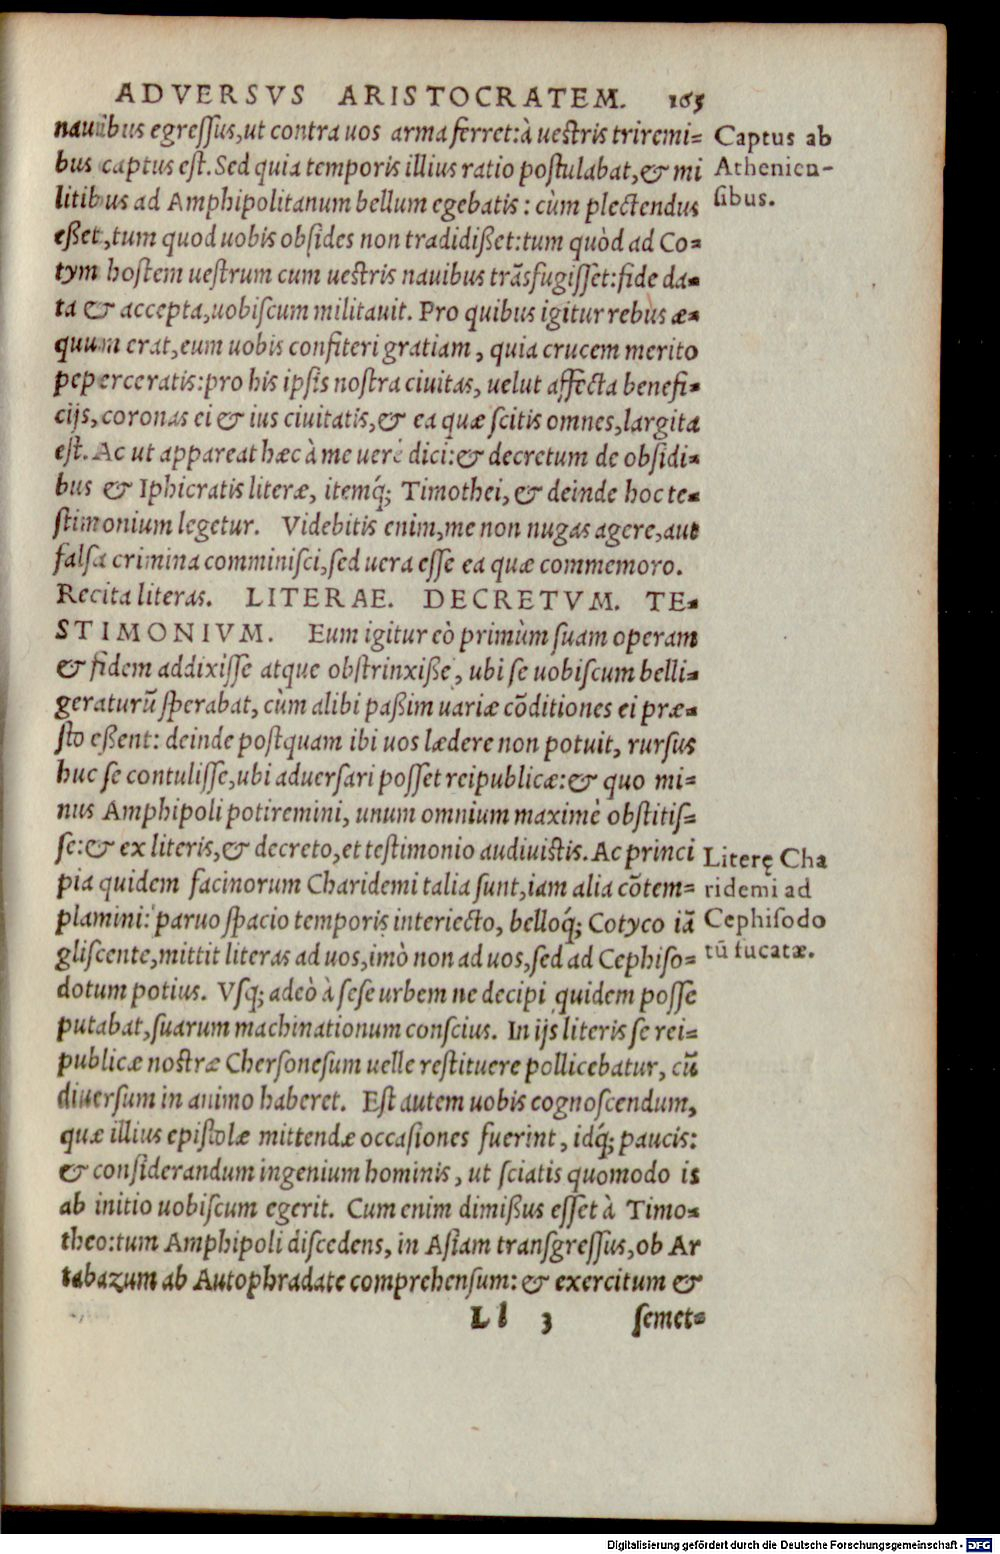 ADVERSVS ARISTOCRATEM. 165
nauibus egreſſus,ut contra uos arma ferret:à ueſtris triremi=
bus captus eſt. Sed quia temporis illius ratio poſtulabat,& mi
litibus ad Amphipolitanum bellum egebatis: cùm plectendus
eßet,tum quod uobis obſides non tradidißet:tum quòd ad Co=
tym hoſtem ueſtrum cum ueſtris nauibus trãsfugiſſet:fide da=
ta & accepta,uobiſcum militauit. Pro quibus igitur rebus æ=
quum erat,eum uobis confiteri gratiam, quia crucem merito
peperceratis:pro his ipſis noſtra ciuitas, uelut affecta benefi=
cijs,coronas ei & ius ciuitatis,& ea quæ ſcitis omnes,largita
eſt. Ac ut appareat hæc à me uerè dici:& decretum de obſidi=
bus & Iphicratis literæ, itemq́; Timothei, & deinde hoc te=
ſtimonium legetur. Videbitis enim,me non nugas agere,aut
falſa crimina comminiſci,ſed uera eſſe ea quæ commemoro.
Recita literas. LITERAE. DECRETVM. TE=
STIMONIVM. Eum igitur eò primùm ſuam operam
& fidem addixiſſe atque obſtrinxiße, ubi ſe uobiſcum belli=
geraturũ ſperabat, cùm alibi paßim uariæ cõditiones ei præ=
ſto eßent: deinde poſtquam ibi uos lædere non potuit, rurſus
huc ſe contuliſſe,ubi aduerſari poſſet reipublicæ:& quo mi=
nus Amphipoli potiremini, unum omnium maximè obſtitiſ=
ſe:& ex literis,& decreto,et teſtimonio audiuiſtis. Ac princi
pia quidem facinorum Charidemi talia ſunt,iam alia cõtem=
plamini: paruo ſpacio temporis interiecto, belloq́; Cotyco iã
gliſcente,mittit literas ad uos,imò non ad uos,ſed ad Cephiſo=
dotum potius. Vſq; adeò à ſeſe urbem ne decipi quidem poſſe
putabat,ſuarum machinationum conſcius. In ijs literis ſe rei=
publicæ noſtræ Cherſoneſum uelle reſtituere pollicebatur, cũ
diuerſum in animo haberet. Eſt autem uobis cognoſcendum,
quæ illius epiſtolæ mittendæ occaſiones fuerint, idq́; paucis:
& conſiderandum ingenium hominis, ut ſciatis quomodo is
ab initio uobiſcum egerit. Cum enim dimißus eſſet à Timo=
theo:tum Amphipoli diſcedens, in Aſiam tranſgreſſus,ob Ar
tabazum ab Autophradate comprehenſum: & exercitum &
Ll 3 ſemet=
Captus ab
Athenien-
ſibus.
Literę Cha
ridemi ad
Cephiſodo
tũ fucatæ.
Digitalisierung gefördert durch die Deutsche Forschungsgemeinschaft - DFG